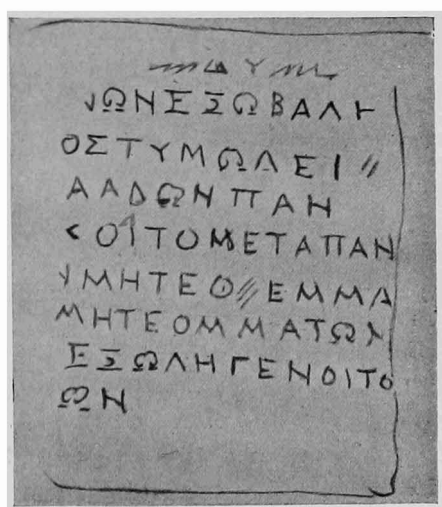 ΔΥ
ΝΩΝΕΞΩΒΑΛΗ
ΟΣΤΥΜΩΛΕΙ
ΑΑΔΩΝΠΑΝ
ΟΙΤΟΜΕΤΑΠΑΝ
ΥΜΗΤΕΟ ΕΜΜΑ
ΜΗΤΕΟΜΜΑΤΩΝ
ΕΞΩΛΗΓΕΝΟΙΤΟ
ΩΝ